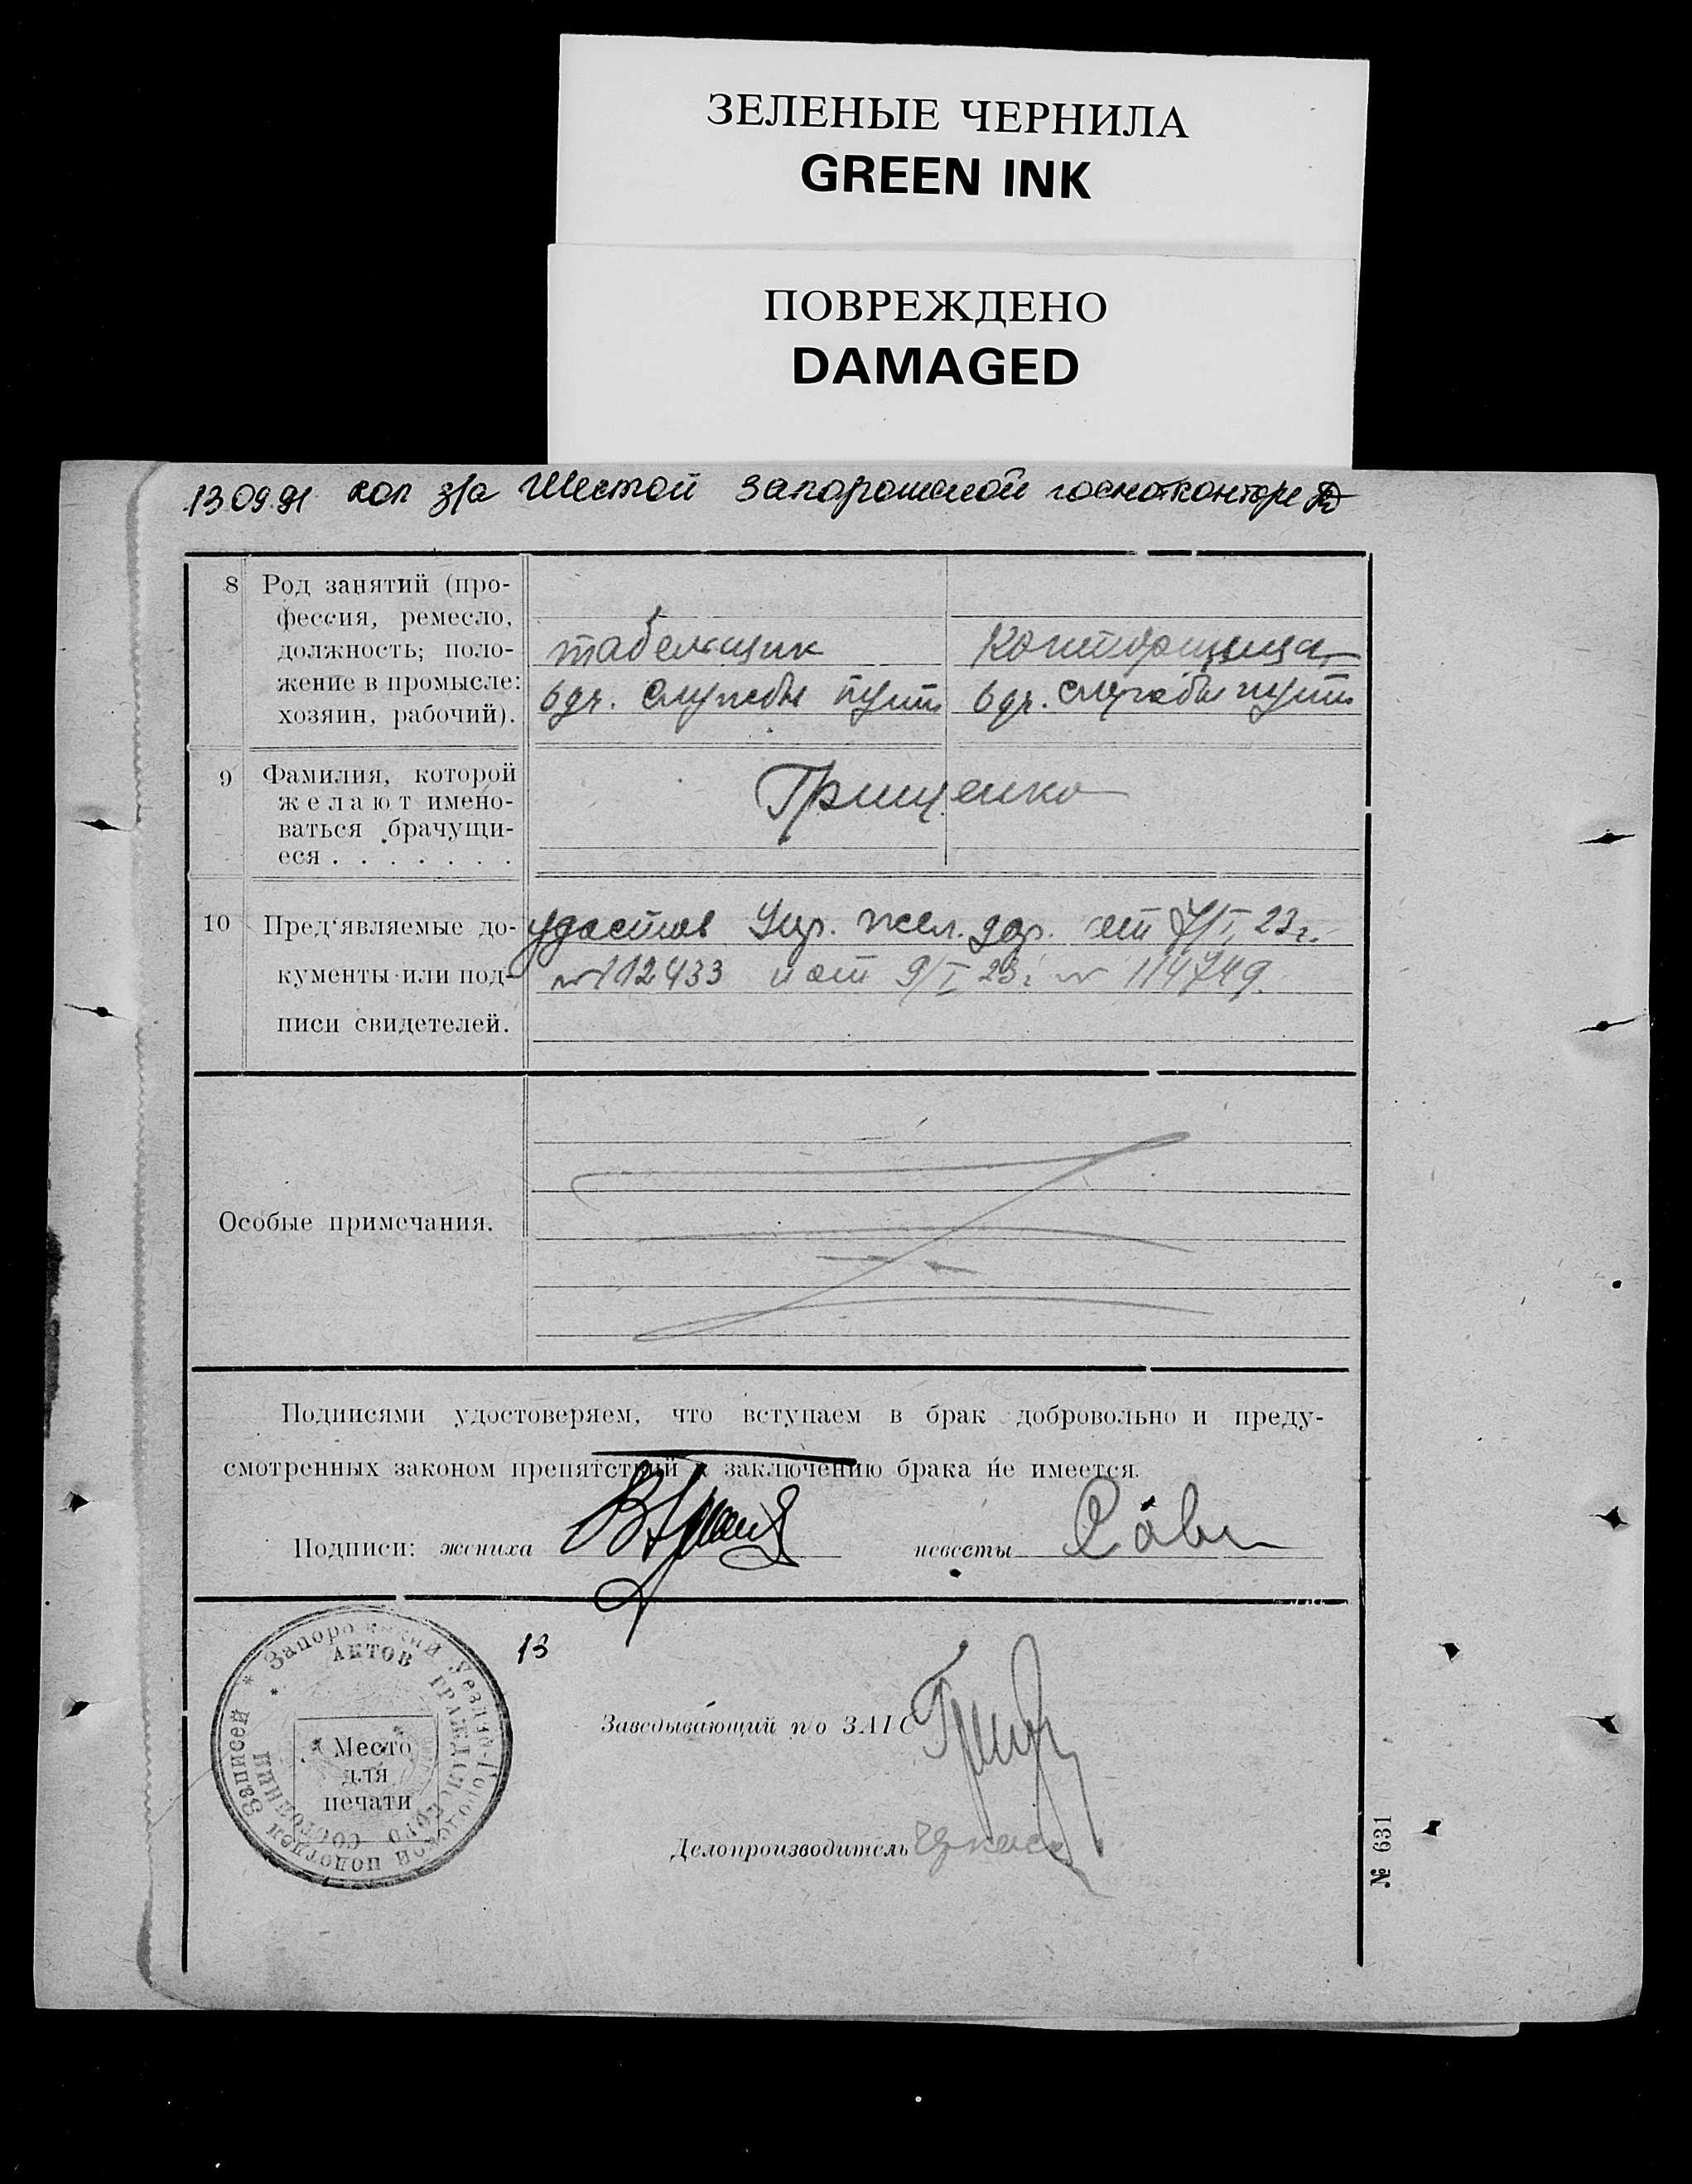 ЗЕЛЕНЫЕ ЧЕРНИЛА
GREEN INK
ПОВРЕЖДЕНО
DAMAGED
13 09.91 коп з/а Шестой запорожской госнотконторе
8 Род занятий (про-
фессия, ремесло,
должность; поло-
жение в промысле:
хозяин, рабочий).
табельщик
6 дч. службы пути
Конторщица
6 дч. службы пути
9 Фамилия, которой
желают имено-
ваться брачущи-
еся . . . . . . .
Грищенко
10 Пред'являемые до-
кументы или под-
писи свидетелей.
удостов Упр. жел. дор. от 7/I 23 г.
№ 112433 и от 9/I 23 г № 114749.
Особые примечания.
Подписями удостоверяем, что вступаем в брак добровольно и преду-
смотренных законом препятствий к заключению брака не имеется.
Подписи: жениха
невесты
* Запорожский Уездно-Городской подотдел Записей
АКТОВ ГРАЖДАНСКОГО СОСТОЯНИЯ
Место
для
печати
13
Заведывающий п/о ЗАГС
Делопроизводитель
№ 631